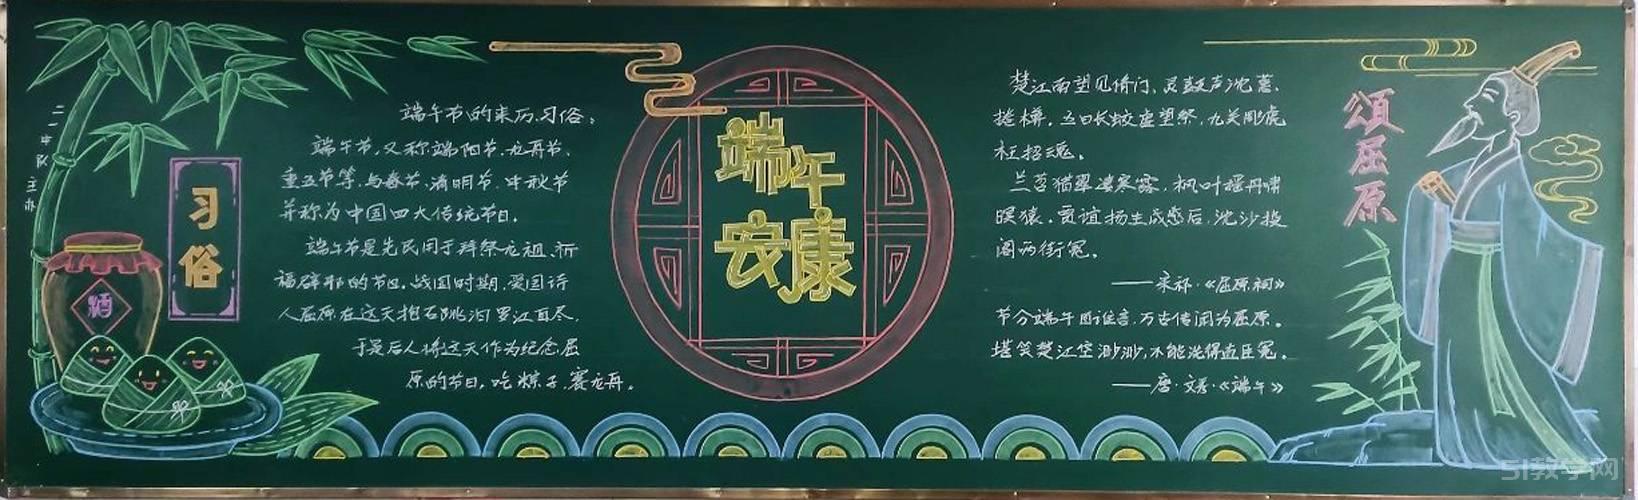 二一中队主办
习俗
酒
端午节的来历、习俗:
端午节,又称端阳节、龙舟节、
重五节等,与春节、清明节、中秋节
并称为中国四大传统节日。
端午节是先民用于拜祭龙祖、祈
福辟邪的节日。战国时期,爱国诗
人屈原在这天抱石跳汨罗江自尽,
于是后人将这天作为纪念屈
原的节日。吃粽子,赛龙舟。
端午
安康
楚江南望见修门、灵鼓声沈蕙
五日长蛟虚望祭,九关雕虎
枉招魂。
兰苕猎翠凄寒露,枫叶摇丹啸
暝猿。贾谊扬生成感后,沈沙投
阁两衔冤。
——宋祁·《屈原祠》
节分端午自谁言,万古传闻为屈原。
堪笑楚江空渺渺,不能洗得直臣冤。
——唐·文秀·《端午》
颂屈原
51教学网